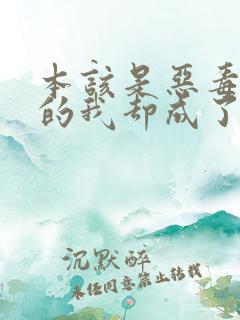 本該是惡毒
的我却成了
沉默醉
未经同意禁止转载